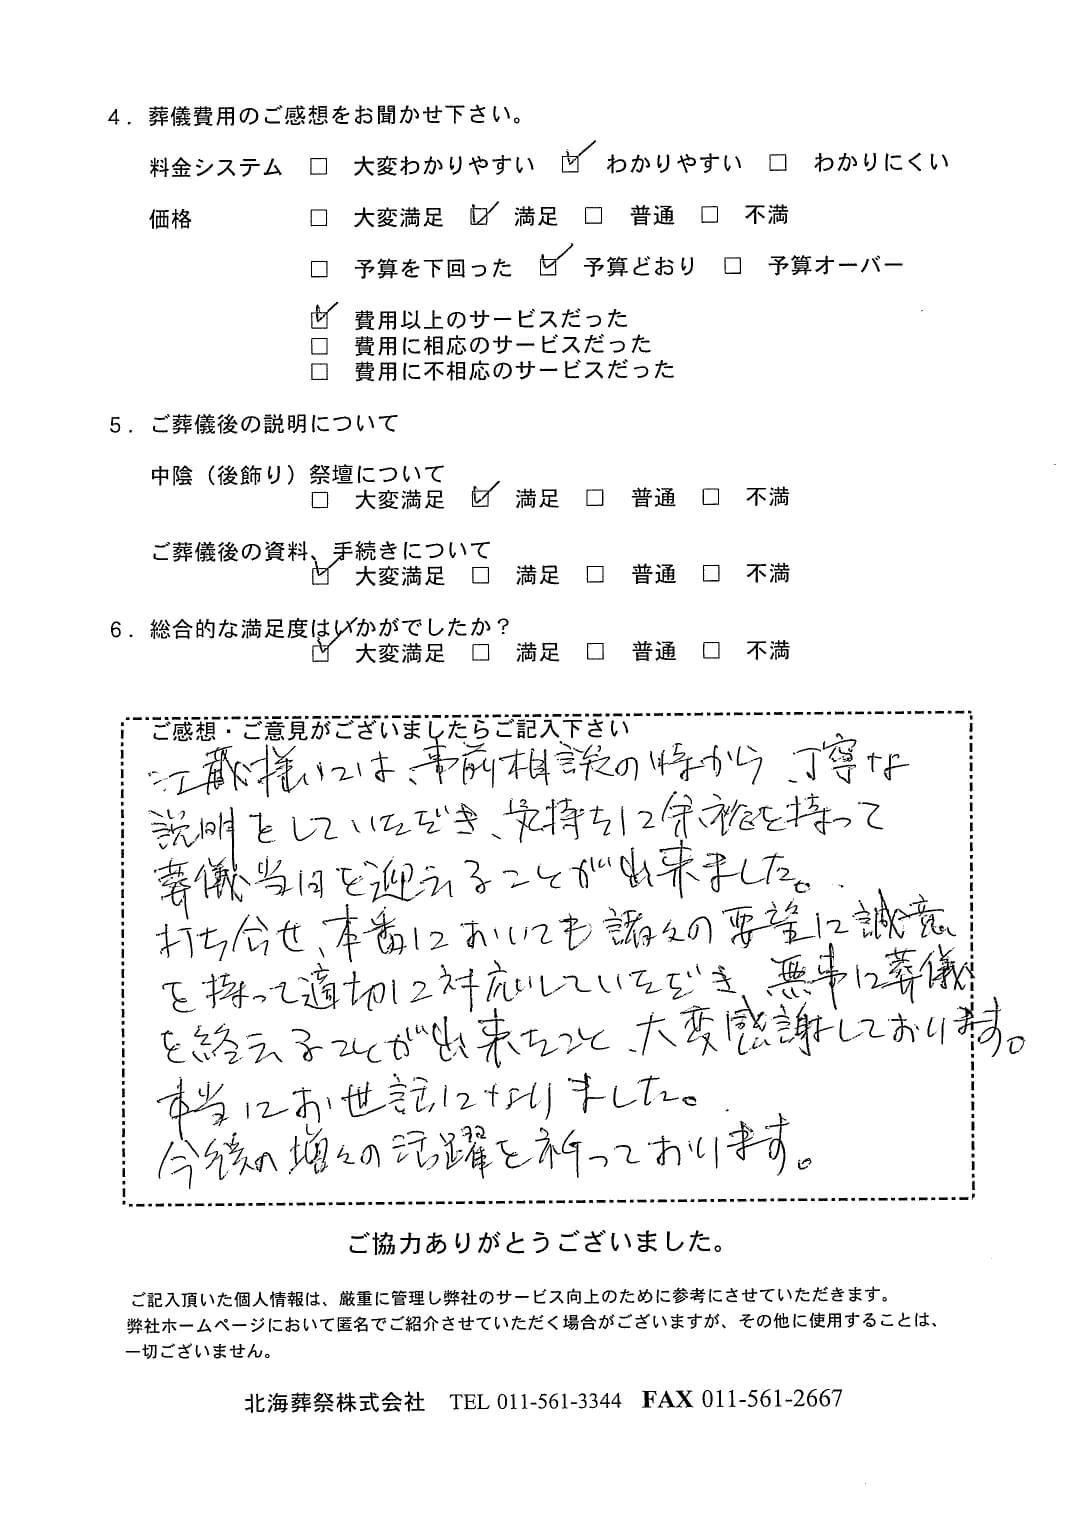 4．葬儀費用のご感想をお聞かせ下さい。
料金システム □ 大変わかりやすい ☑ わかりやすい □ わかりにくい
価格 □ 大変満足 ☑ 満足 □ 普通 □ 不満
□ 予算を下回った ☑ 予算どおり □ 予算オーバー
☑ 費用以上のサービスだった
□ 費用に相応のサービスだった
□ 費用に不相応のサービスだった
5．ご葬儀後の説明について
中陰（後飾り）祭壇について
□ 大変満足 ☑ 満足 □ 普通 □ 不満
ご葬儀後の資料、手続きについて
☑ 大変満足 □ 満足 □ 普通 □ 不満
6．総合的な満足度はいかがでしたか？
☑ 大変満足 □ 満足 □ 普通 □ 不満
ご感想・ご意見がございましたらご記入下さい
様には、事前相談の時から、丁寧な
説明をしていただき、気持ちに余裕を持って
葬儀当日を迎えることが出来ました。
打ち合せ、本番においても諸々の要望に誠意
を持って適切に対応していただき、無事に葬儀
を終えることが出来たこと、大変感謝しております。
本当にお世話になりました。
今後の増々の活躍を祈っております。
ご協力ありがとうございました。
ご記入頂いた個人情報は、厳重に管理し弊社のサービス向上のために参考にさせていただきます。
弊社ホームページにおいて匿名でご紹介させていただく場合がございますが、その他に使用することは、
一切ございません。
北海葬祭株式会社 TEL 011-561-3344 FAX 011-561-2667